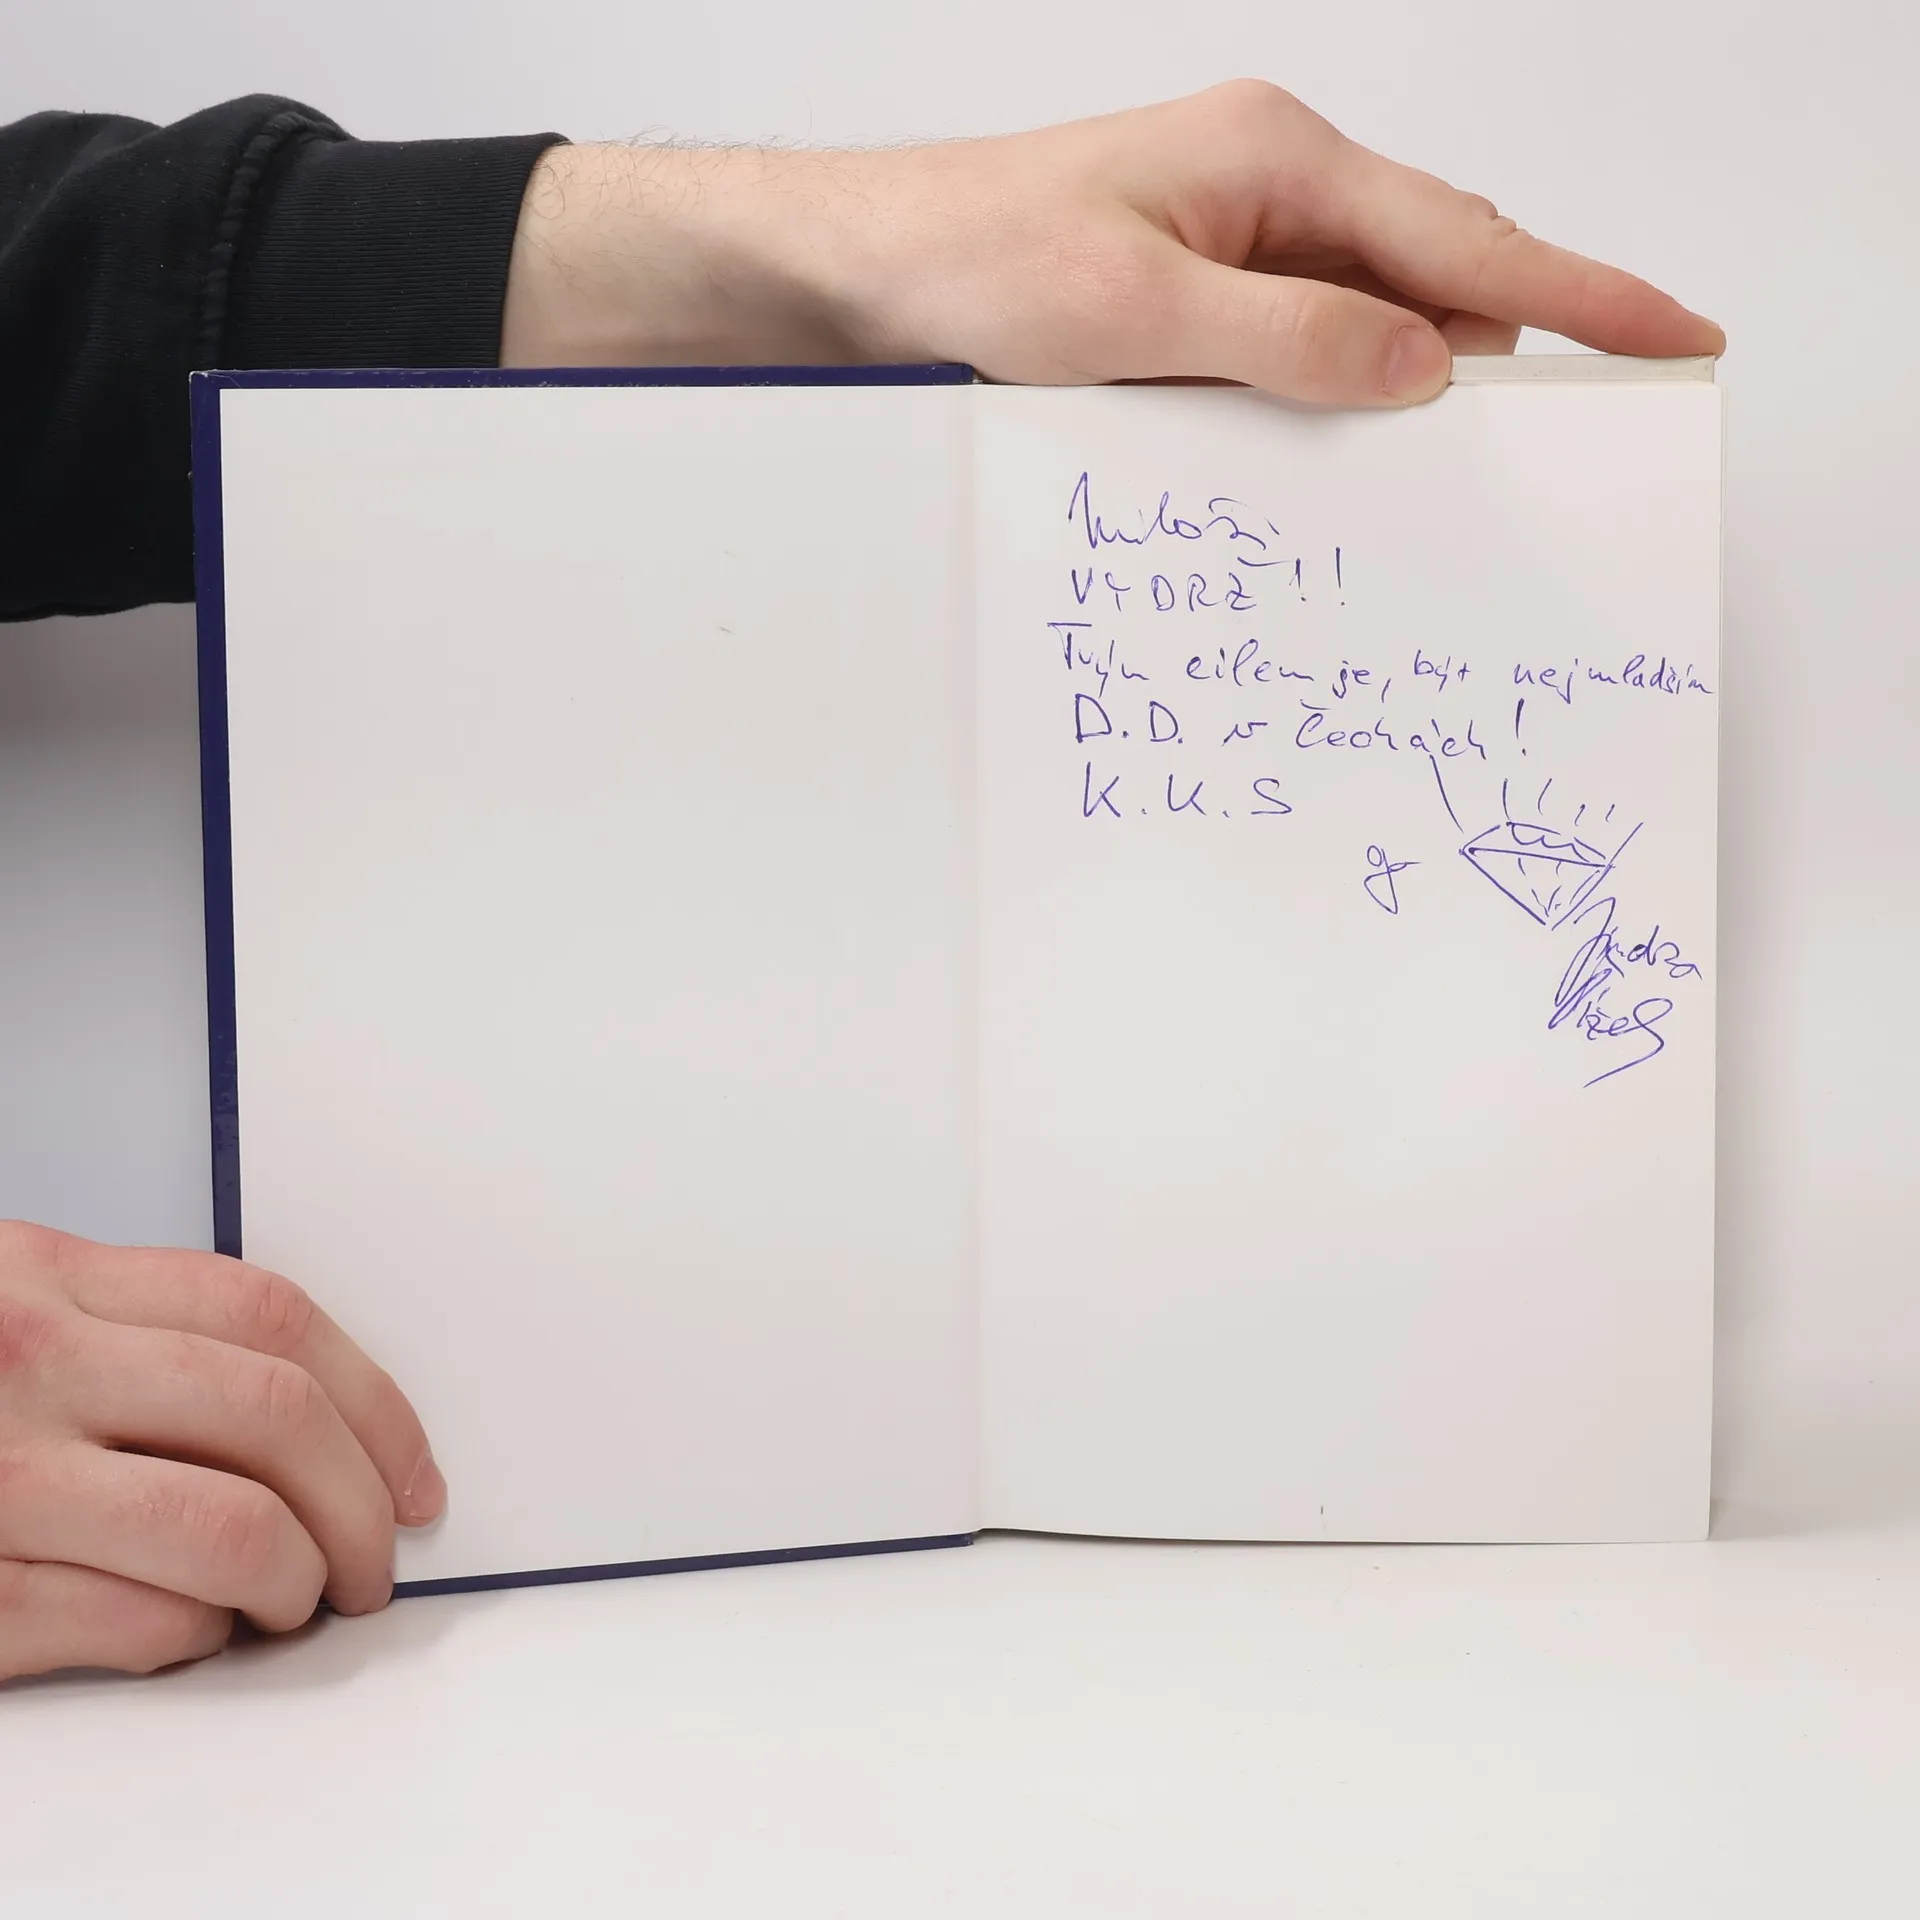 Miloši
VYDRŽ!!
Tvým cílem je, být nejmladším
D.D. v Čechách!
K.K.S
Jindra